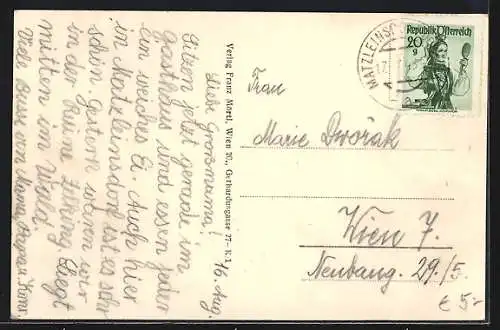 16. Aug.
Liebe Grossmama!
Sitzen jetzt gerade im
Gasthaus und essen jeder
ein weiches Ei. Auch hier
in Matzleinsdorf ist es sehr
schön. Gestern waren wir
in der Ruine Zelking. Liegt
mitten im Wald.
Viele Bussi von Mama, Papa u.
Verlag Franz Mörtl, Wien 20., Gerhardusgasse 27 - K.1
MATZLEINSDO
17.
Republik Österreich
20
g
Frau
Marie Dvořak
Wien 7.
Neubaug. 29/5.
€ 5,-